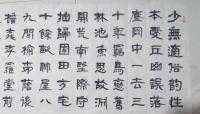 少無適俗韻性
本愛丘山誤落
塵网中一去三
十年羈鳥戀舊
林池魚思故淵
開荒南野際守
拙歸園田方宅
十餘畝草屋八
九間榆柳蔭後
檐桃李羅堂前